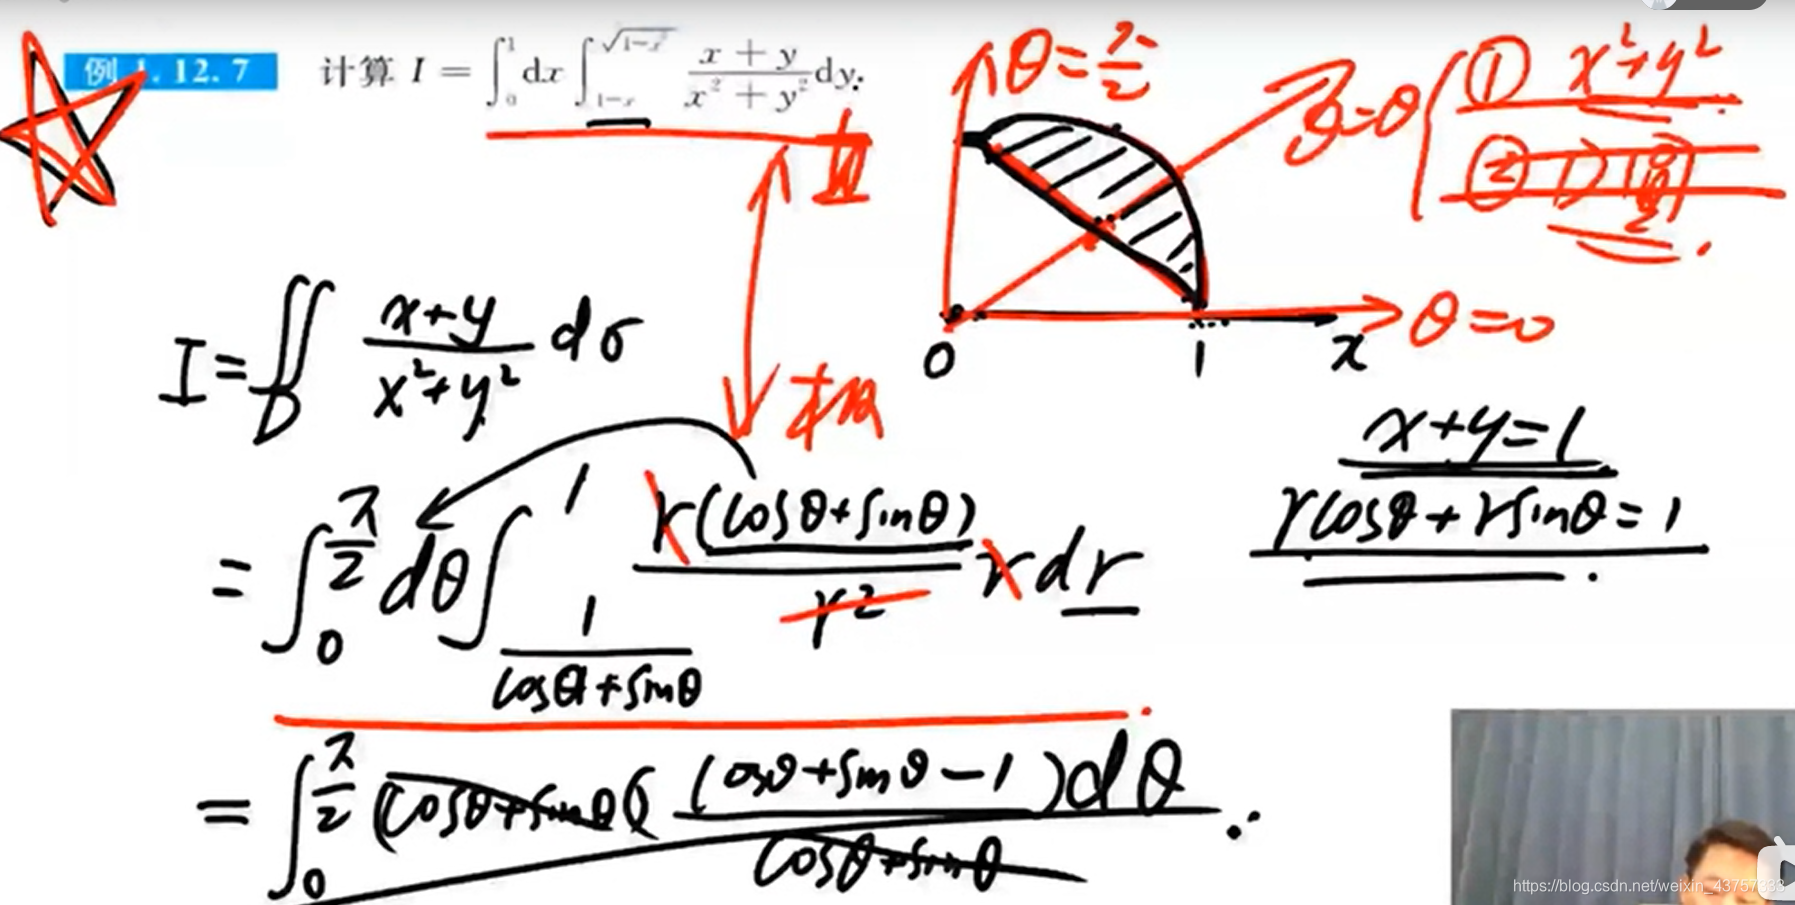 例 1.12.7 计算 I = ∫₀¹ dx ∫_{1-x}^{√(1-x²)} (x + y)/(x² + y²) dy.
θ = π/2
θ = θ
① x² + y²
②
θ = 0
0 1 x
I = ∬_D (x+y)/(x²+y²) dσ
x+y=1
rcosθ + rsinθ = 1
= ∫₀^{π/2} dθ ∫_{1/(cosθ+sinθ)}^1 r(cosθ+sinθ)/r² r dr
= ∫₀^{π/2} (cosθ+sinθ)( (cosθ+sinθ-1)/(cosθ+sinθ) ) dθ
https://blog.csdn.net/weixin_43757333